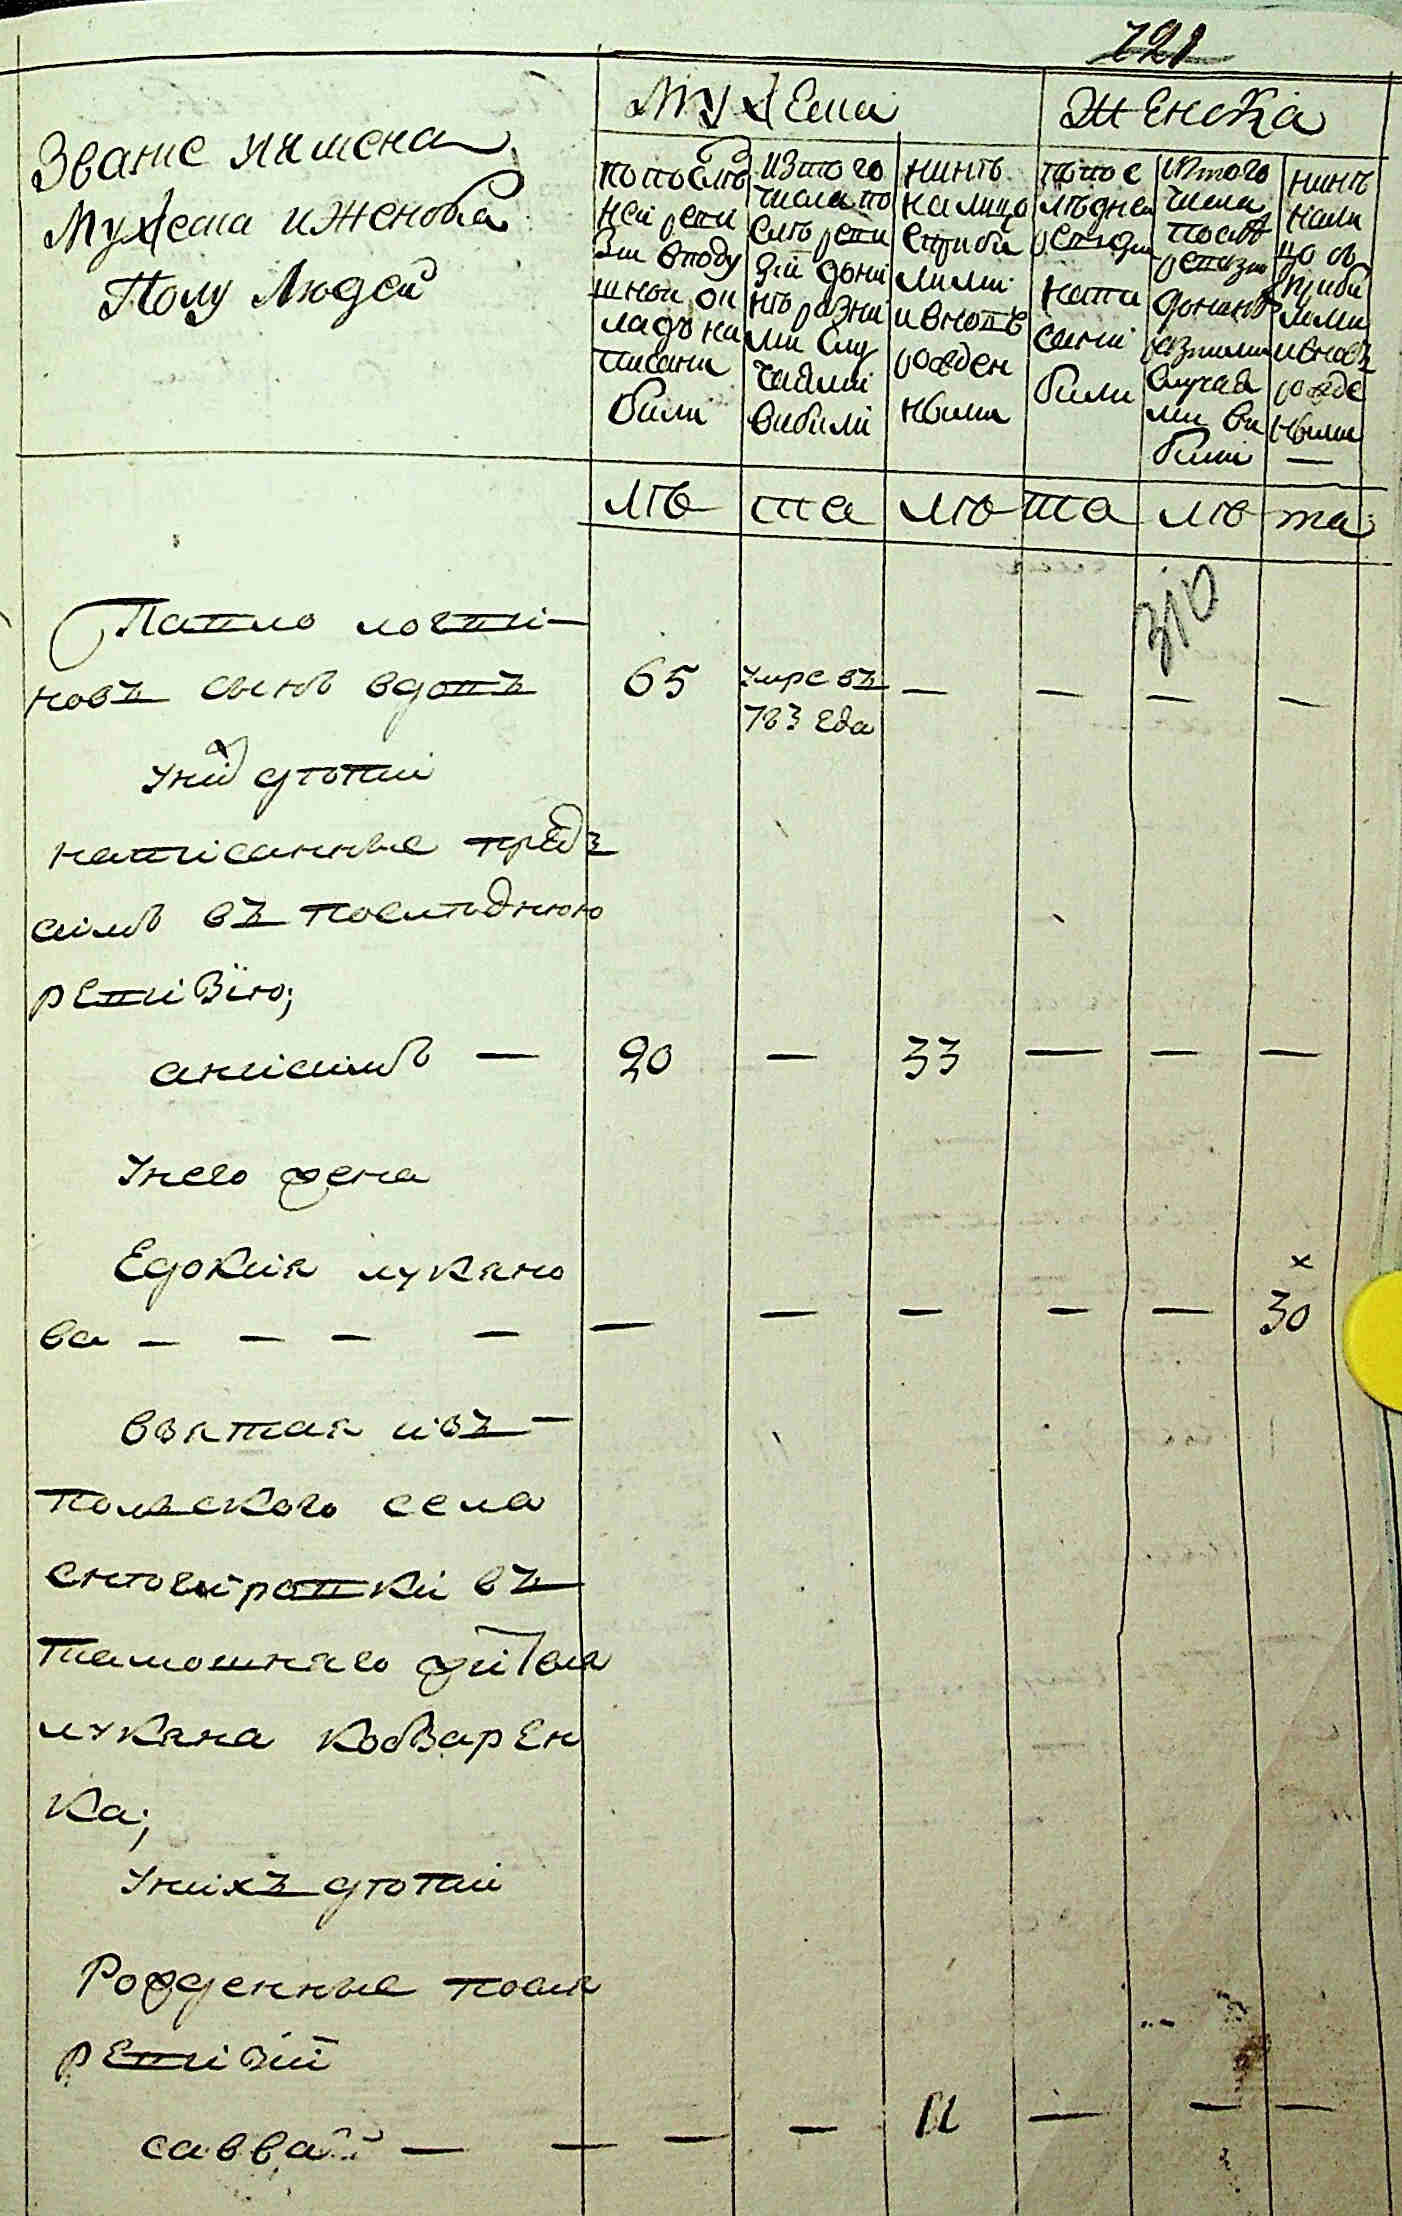 721
Звание и имена
Мужеска и женска
Полу Людей
Мужеска
Женска
по последней ревизіи в подушной окладъ написаны были
изтого числа после ревизіи до нинѣ разними случаями вибили
нинѣ на лицо сприбилими и вновъ рожденными
по последней ревизіи написани били
изтого числа послѣ ревизіи до нинѣ разними случаями вибили
нинѣ на лицо съ прибилими и вновъ рожденными —
лѣ та лѣ та лѣ та
310
Павло логви-
новъ синъ вдовъ 65 умре въ — — — —
783 года
унего дѣтей
написанные предъ
симъ въ последнюю
ревизію;
анисимъ — 20 — 33 — — —
унего жена
Едокия лукяно
ва — — — — — — — — — 30
взятая изъ —
польского села
въ
тамошняго жителя
лукяна
ка;
унихъ дѣтей
Рожденные посля
ревизій
савва — — — — 11 — — —